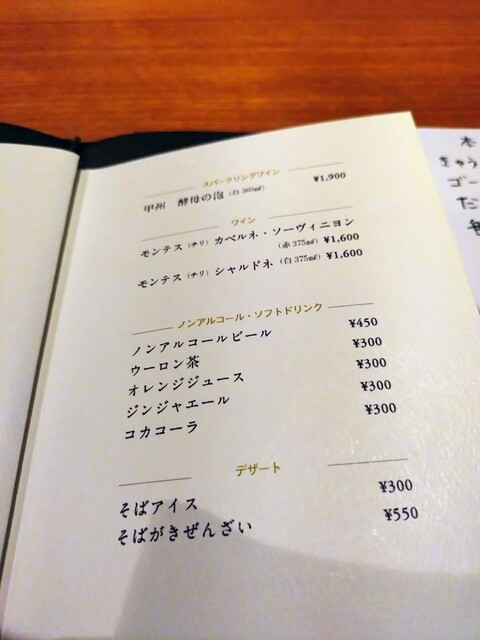 スパークリングワイン
甲州 酵母の泡 (白 360㎖) ¥1,900
ワイン
モンテス (チリ) カベルネ・ソーヴィニヨン
(赤 375㎖) ¥1,600
モンテス (チリ) シャルドネ (白 375㎖) ¥1,600
ノンアルコール・ソフトドリンク
ノンアルコールビール ¥450
ウーロン茶 ¥300
オレンジジュース ¥300
ジンジャエール ¥300
コカコーラ ¥300
デザート
そばアイス ¥300
そばがきぜんざい ¥550
きゅう
ゴー
だ